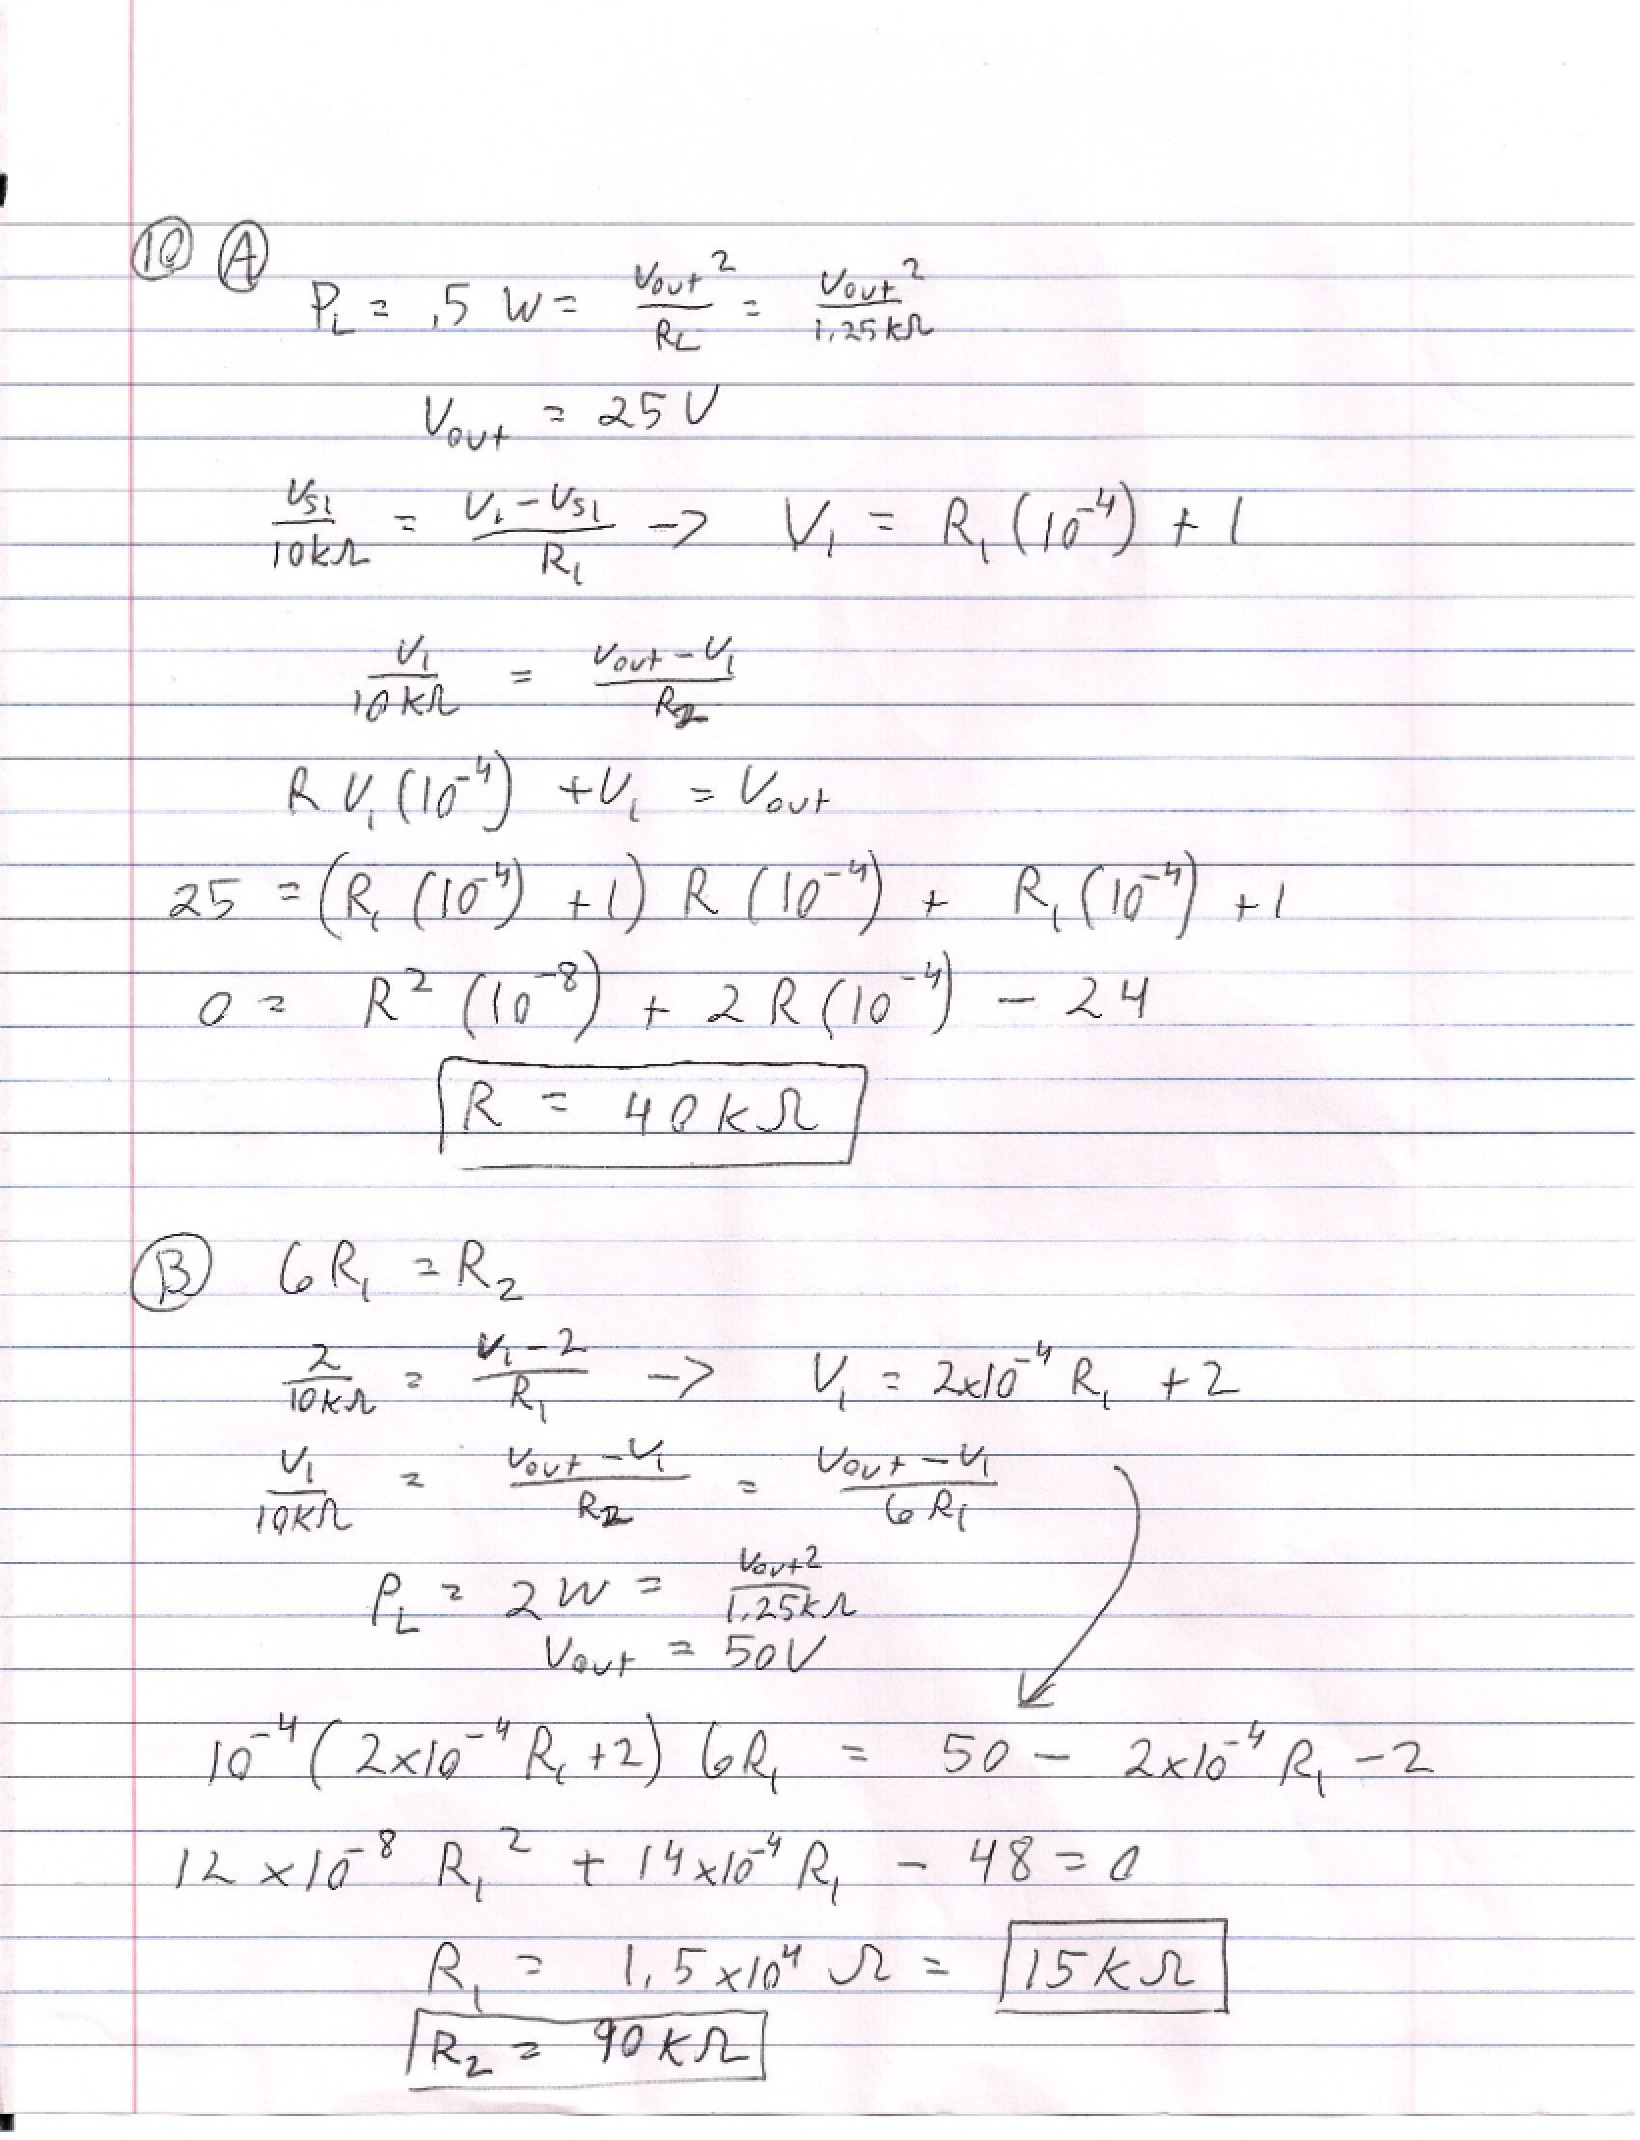 10 A
P_L = .5 W = Vout² / R_L = Vout² / 1.25kΩ
Vout = 25V
Vs1 / 10kΩ = (V1 - Vs1) / R1 -> V1 = R1 (10⁻⁴) + 1
V1 / 10kΩ = (Vout - V1) / R2
R V1 (10⁻⁴) + V1 = Vout
25 = (R1 (10⁻⁴) + 1) R (10⁻⁴) + R1 (10⁻⁴) + 1
0 = R² (10⁻⁸) + 2 R (10⁻⁴) - 24
R = 40kΩ
B 6R1 = R2
2 / 10kΩ = (V1 - 2) / R1 -> V1 = 2x10⁻⁴ R1 + 2
V1 / 10kΩ = (Vout - V1) / R2 = (Vout - V1) / 6R1
P_L = 2W = Vout² / 1.25kΩ
Vout = 50V
10⁻⁴ (2x10⁻⁴ R1 + 2) 6R1 = 50 - 2x10⁻⁴ R1 - 2
12x10⁻⁸ R1² + 14x10⁻⁴ R1 - 48 = 0
R1 = 1.5x10⁴ Ω = 15kΩ
R2 = 90kΩ